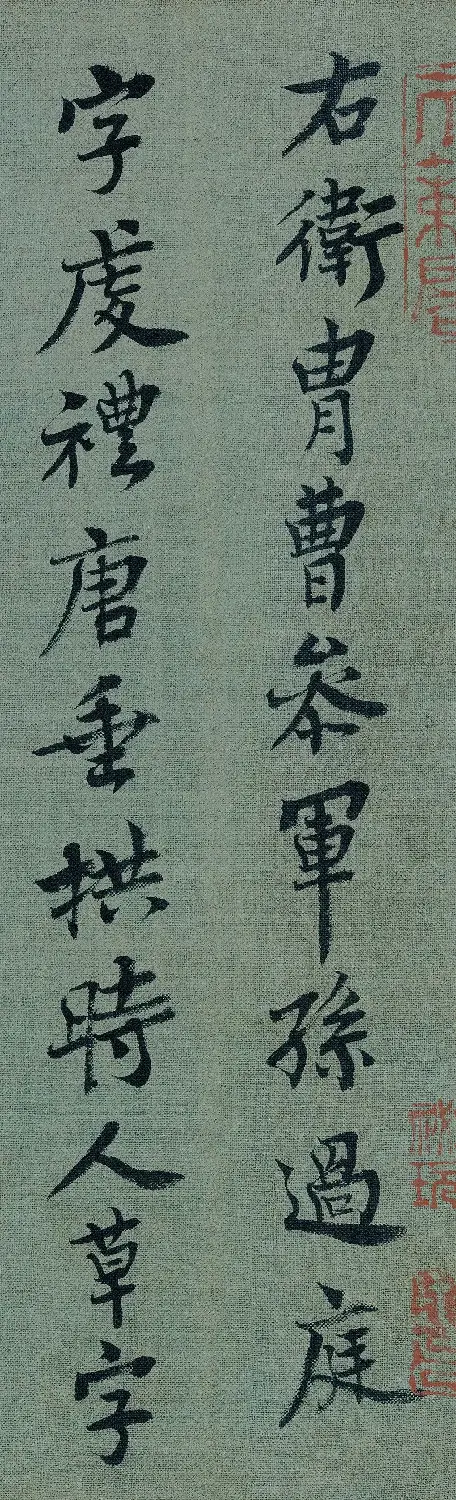 右衛冑曹叅軍孫過庭
字虔禮唐垂拱時人草字